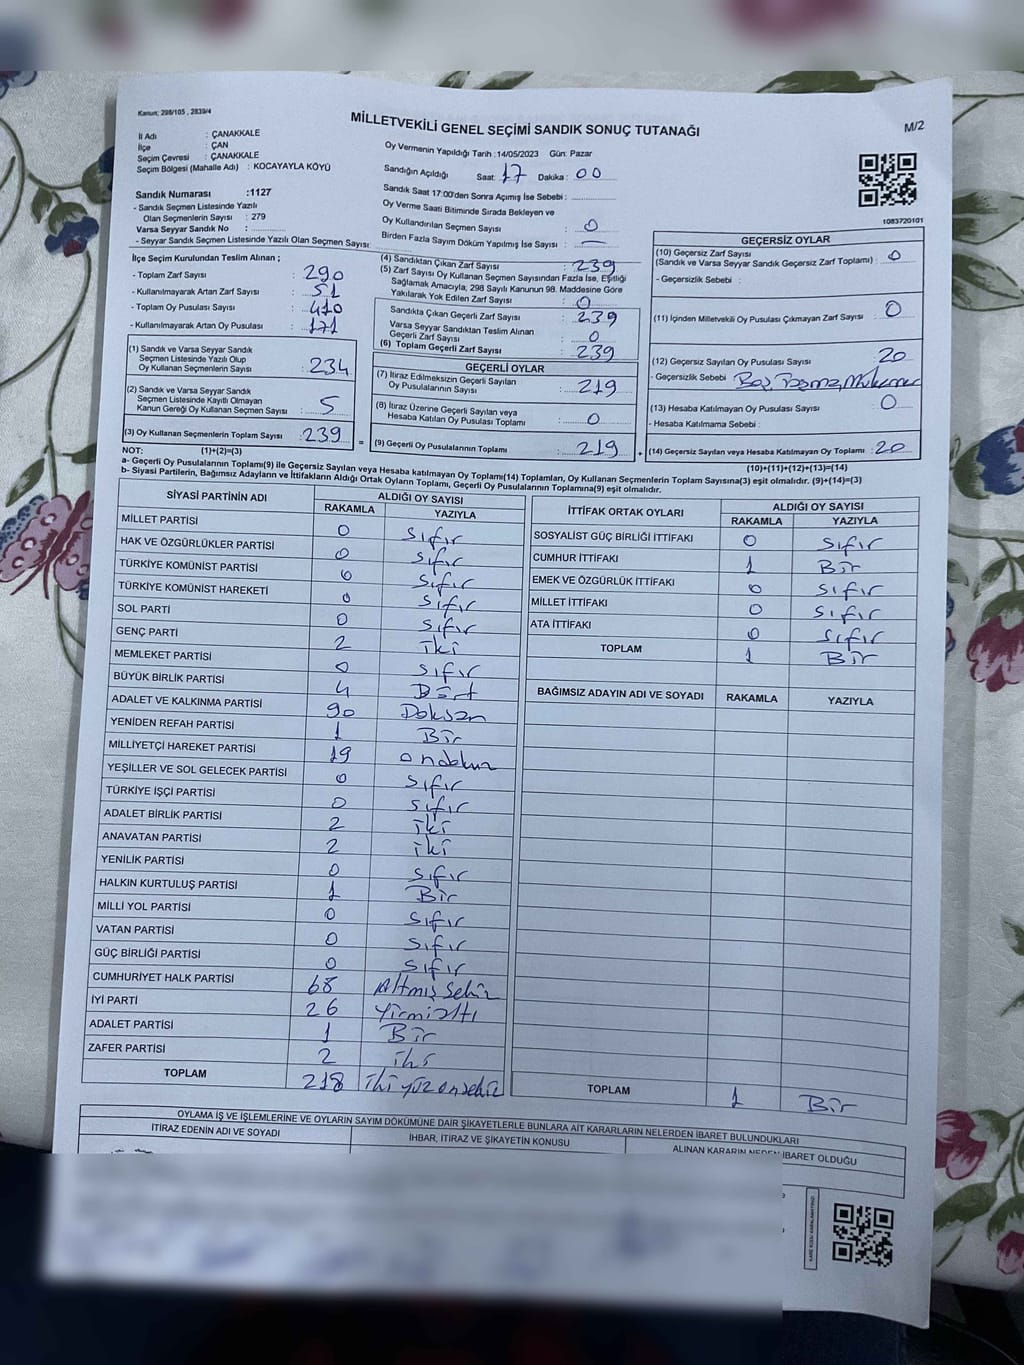 Kanun; 298/105 , 2839/4
MİLLETVEKİLİ GENEL SEÇİMİ SANDIK SONUÇ TUTANAĞI
M/2
İl Adı : ÇANAKKALE
İlçe : ÇAN
Seçim Çevresi : ÇANAKKALE
Seçim Bölgesi (Mahalle Adı) : KOCAYAYLA KÖYÜ
Sandık Numarası :1127
- Sandık Seçmen Listesinde Yazılı
Olan Seçmenlerin Sayısı : 279
Varsa Seyyar Sandık No :
- Seyyar Sandık Seçmen Listesinde Yazılı Olan Seçmen Sayısı:
Oy Vermenin Yapıldığı Tarih :14/05/2023 Gün: Pazar
Sandığın Açıldığı Saat: 17 Dakika : 00
Sandık Saat 17:00'den Sonra Açımış İse Sebebi :
Oy Verme Saati Bitiminde Sırada Bekleyen ve
Oy Kullandırılan Seçmen Sayısı : 0
Birden Fazla Sayım Döküm Yapılmış İse Sayısı : —
1083720101
İlçe Seçim Kurulundan Teslim Alınan ;
- Toplam Zarf Sayısı : 290
- Kullanılmayarak Artan Zarf Sayısı : 51
- Toplam Oy Pusulası Sayısı : 410
- Kullanılmayarak Artan Oy Pusulası : 171
(1) Sandık ve Varsa Seyyar Sandık
Seçmen Listesinde Yazılı Olup
Oy Kullanan Seçmenlerin Sayısı : 234
(2) Sandık ve Varsa Seyyar Sandık
Seçmen Listesinde Kayıtlı Olmayan
Kanun Gereği Oy Kullanan Seçmen Sayısı : 5
(3) Oy Kullanan Seçmenlerin Toplam Sayısı : 239
(1)+(2)=(3)
(4) Sandıktan Çıkan Zarf Sayısı : 239
(5) Zarf Sayısı Oy Kullanan Seçmen Sayısından Fazla İse, Eşitliği
Sağlamak Amacıyla, 298 Sayılı Kanunun 98. Maddesine Göre
Yakılarak Yok Edilen Zarf Sayısı : 0
Sandıkta Çıkan Geçerli Zarf Sayısı : 239
Varsa Seyyar Sandıktan Teslim Alınan
Geçerli Zarf Sayısı : 0
(6) Toplam Geçerli Zarf Sayısı : 239
GEÇERLİ OYLAR
(7) İtiraz Edilmeksizin Geçerli Sayılan
Oy Pusulalarının Sayısı : 219
(8) İtiraz Üzerine Geçerli Sayılan veya
Hesaba Katılan Oy Pusulası Toplamı : 0
= (9) Geçerli Oy Pusulalarının Toplamı : 219 +
GEÇERSİZ OYLAR
(10) Geçersiz Zarf Sayısı
(Sandık ve Varsa Seyyar Sandık Geçersiz Zarf Toplamı) : 0
- Geçersizlik Sebebi :
(11) İçinden Milletvekili Oy Pusulası Çıkmayan Zarf Sayısı : 0
(12) Geçersiz Sayılan Oy Pusulası Sayısı : 20
- Geçersizlik Sebebi : Boş
(13) Hesaba Katılmayan Oy Pusulası Sayısı : 0
- Hesaba Katılmama Sebebi :
(14) Geçersiz Sayılan veya Hesaba Katılmayan Oy Toplamı : 20
(10)+(11)+(12)+(13)=(14)
NOT:
a- Geçerli Oy Pusulalarının Toplamı(9) ile Geçersiz Sayılan veya Hesaba katılmayan Oy Toplamı(14) Toplamları, Oy Kullanan Seçmenlerin Toplam Sayısına(3) eşit olmalıdır. (9)+(14)=(3)
b- Siyasi Partilerin, Bağımsız Adayların ve İttifakların Aldığı Ortak Oyların Toplamı, Geçerli Oy Pusulalarının Toplamına(9) eşit olmalıdır.
SİYASİ PARTİNİN ADI ALDIĞI OY SAYISI
RAKAMLA YAZIYLA
MİLLET PARTİSİ 0 Sıfır
HAK VE ÖZGÜRLÜKLER PARTİSİ 0 Sıfır
TÜRKİYE KOMÜNİST PARTİSİ 0 Sıfır
TÜRKİYE KOMÜNİST HAREKETİ 0 Sıfır
SOL PARTİ 0 Sıfır
GENÇ PARTİ 2 iki
MEMLEKET PARTİSİ 0 Sıfır
BÜYÜK BİRLİK PARTİSİ 4 Dört
ADALET VE KALKINMA PARTİSİ 90 Doksan
YENİDEN REFAH PARTİSİ 1 Bir
MİLLİYETÇİ HAREKET PARTİSİ 19 ondokuz
YEŞİLLER VE SOL GELECEK PARTİSİ 0 Sıfır
TÜRKİYE İŞÇİ PARTİSİ 0 Sıfır
ADALET BİRLİK PARTİSİ 2 iki
ANAVATAN PARTİSİ 2 iki
YENİLİK PARTİSİ 0 Sıfır
HALKIN KURTULUŞ PARTİSİ 1 Bir
MİLLİ YOL PARTİSİ 0 Sıfır
VATAN PARTİSİ 0 Sıfır
GÜÇ BİRLİĞİ PARTİSİ 0 Sıfır
CUMHURİYET HALK PARTİSİ 68 Altmış Sekiz
İYİ PARTİ 26 Yirmialtı
ADALET PARTİSİ 1 Bir
ZAFER PARTİSİ 2 iki
TOPLAM 218 ikiyüzonsekiz
İTTİFAK ORTAK OYLARI ALDIĞI OY SAYISI
RAKAMLA YAZIYLA
SOSYALİST GÜÇ BİRLİĞİ İTTİFAKI 0 Sıfır
CUMHUR İTTİFAKI 1 Bir
EMEK VE ÖZGÜRLÜK İTTİFAKI 0 Sıfır
MİLLET İTTİFAKI 0 Sıfır
ATA İTTİFAKI 0 Sıfır
TOPLAM 1 Bir
BAĞIMSIZ ADAYIN ADI VE SOYADI RAKAMLA YAZIYLA
TOPLAM 1 Bir
OYLAMA İŞ VE İŞLEMLERİNE VE OYLARIN SAYIM DÖKÜMÜNE DAİR ŞİKAYETLERLE BUNLARA AİT KARARLARIN NELERDEN İBARET BULUNDUKLARI
İTİRAZ EDENİN ADI VE SOYADI İHBAR, İTİRAZ VE ŞİKAYETİN KONUSU ALINAN KARARIN NEDEN İBARET OLDUĞU